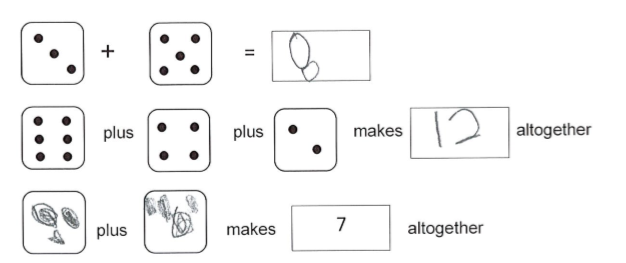 + = 8
plus plus makes 12 altogether
plus makes 7 altogether